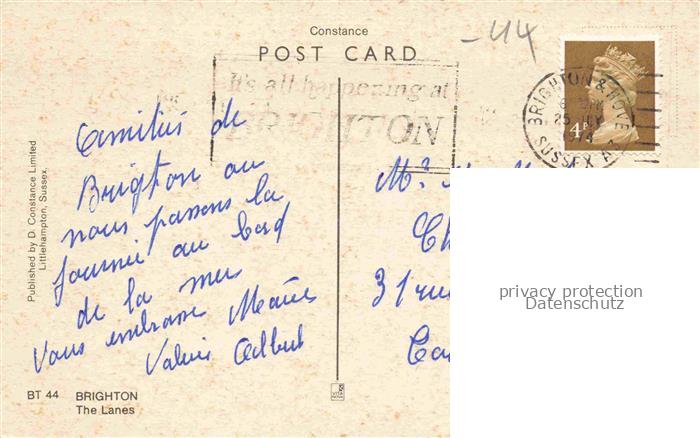 Constance
POST CARD
-44
It's all happening at
BRIGHTON
BRIGHTON & HOVE
25
1974
SUSSEX
4P
Amitiés de
Brigton ou
nous passons la
journée au bord
de la mer
Vous embrasse
Valérie Albert
Published by D. Constance Limited
Littlehampton, Sussex.
31 rue
privacy protection
Datenschutz
BT 44 BRIGHTON
The Lanes